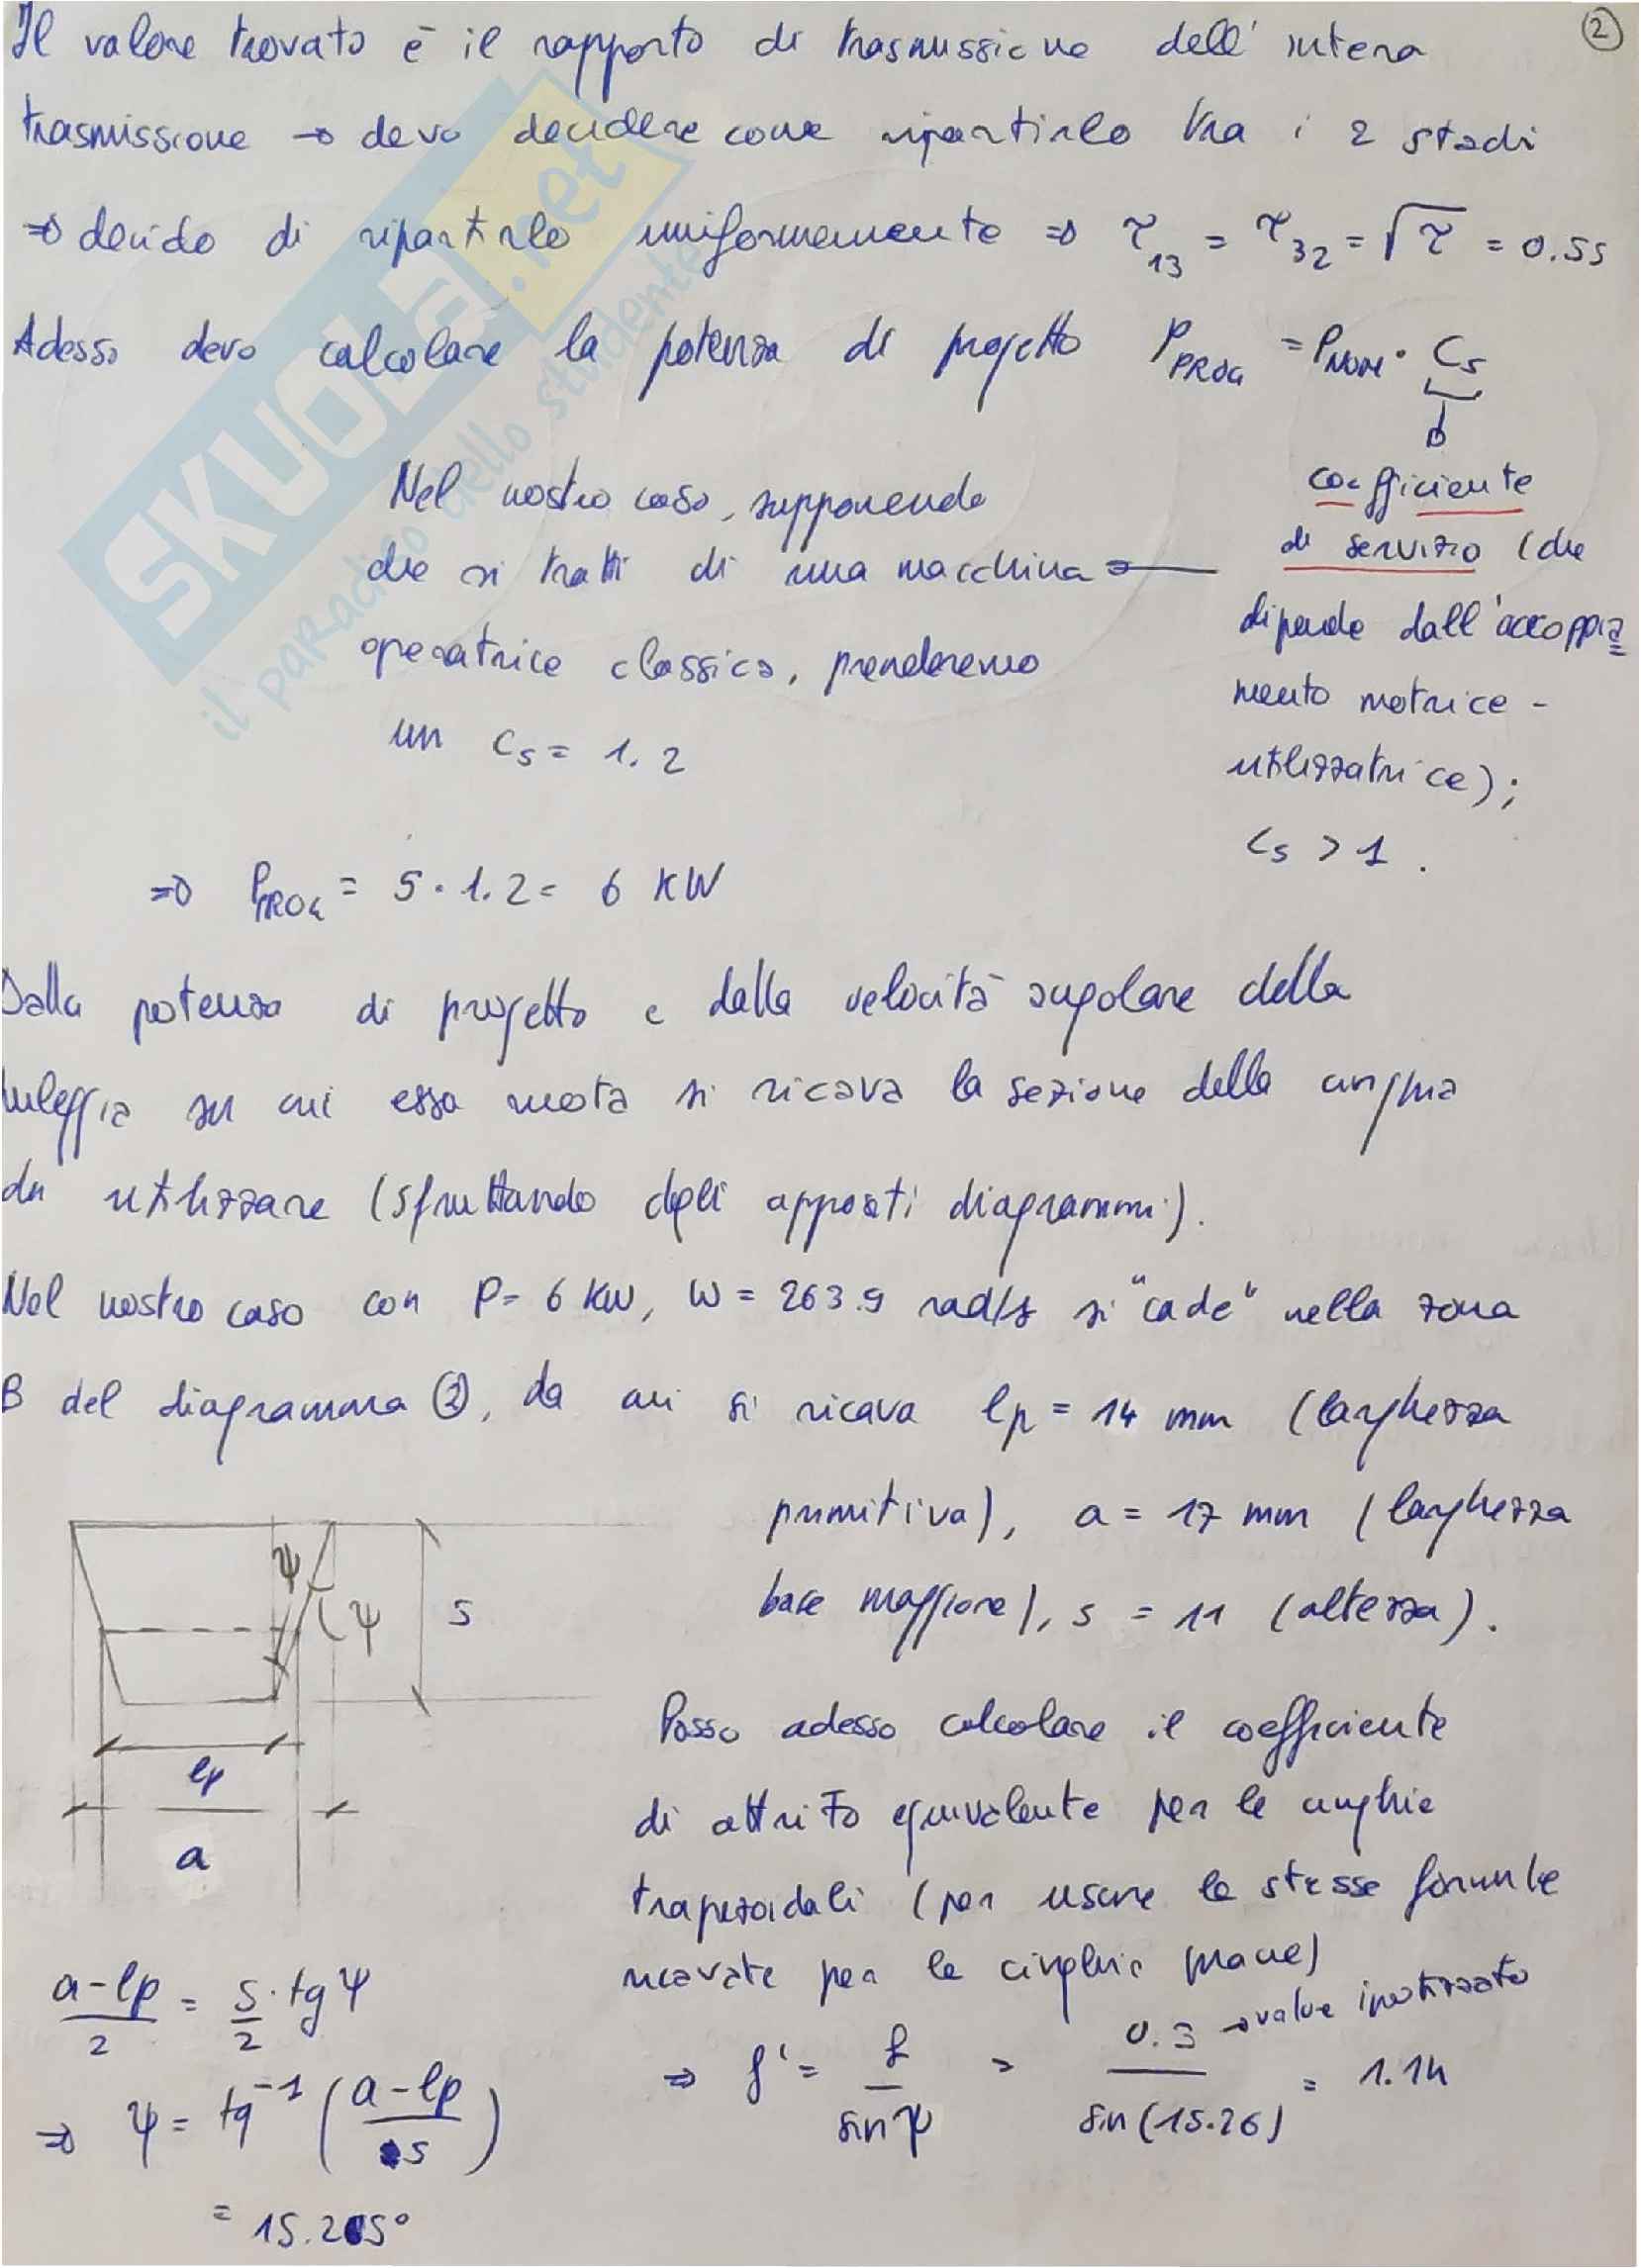 ②
Il valore trovato è il rapporto di trasmissione dell'intera
trasmissione → devo decidere come ripartirlo tra i 2 stadi
⇒ decido di ripartirlo uniformemente ⇒ τ₁₃ = τ₃₂ = √τ = 0.55
Adesso devo calcolare la potenza di progetto P_PROG = P_NOM · C_S
coefficiente
di servizio (che
dipende dall'accoppia=
mento motrice -
utilizzatrice);
C_S > 1.
Nel nostro caso, supponendo
che si tratti di una macchina
operatrice classica, prenderemo
un C_S = 1.2
⇒ P_PROG = 5 · 1.2 = 6 KW
Dalla potenza di progetto e dalla velocità angolare della
puleggia su cui essa ruota si ricava la sezione della cinghia
da utilizzare (sfruttando degli appositi diagrammi).
Nel nostro caso con P = 6 KW, W = 263.9 rad/s si "cade" nella zona
B del diagramma ②, da cui si ricava lp = 14 mm (larghezza
primitiva), a = 17 mm (larghezza
base maggiore), s = 11 (altezza).
ψ
ψ
s
lp
a
Posso adesso calcolare il coefficiente
di attrito equivalente per le cinghie
trapezoidali (per usare le stesse formule
ricavate per le cinghie piane)
⇒ f' = f / sin ψ = 0.3 / sin(15.26) = 1.14
→ valore ipotizzato
(a - lp)/2 = s/2 · tg ψ
⇒ ψ = tg⁻¹ ((a - lp)/s)
= 15.255°
SKUOLA.net
il paradiso dello studente